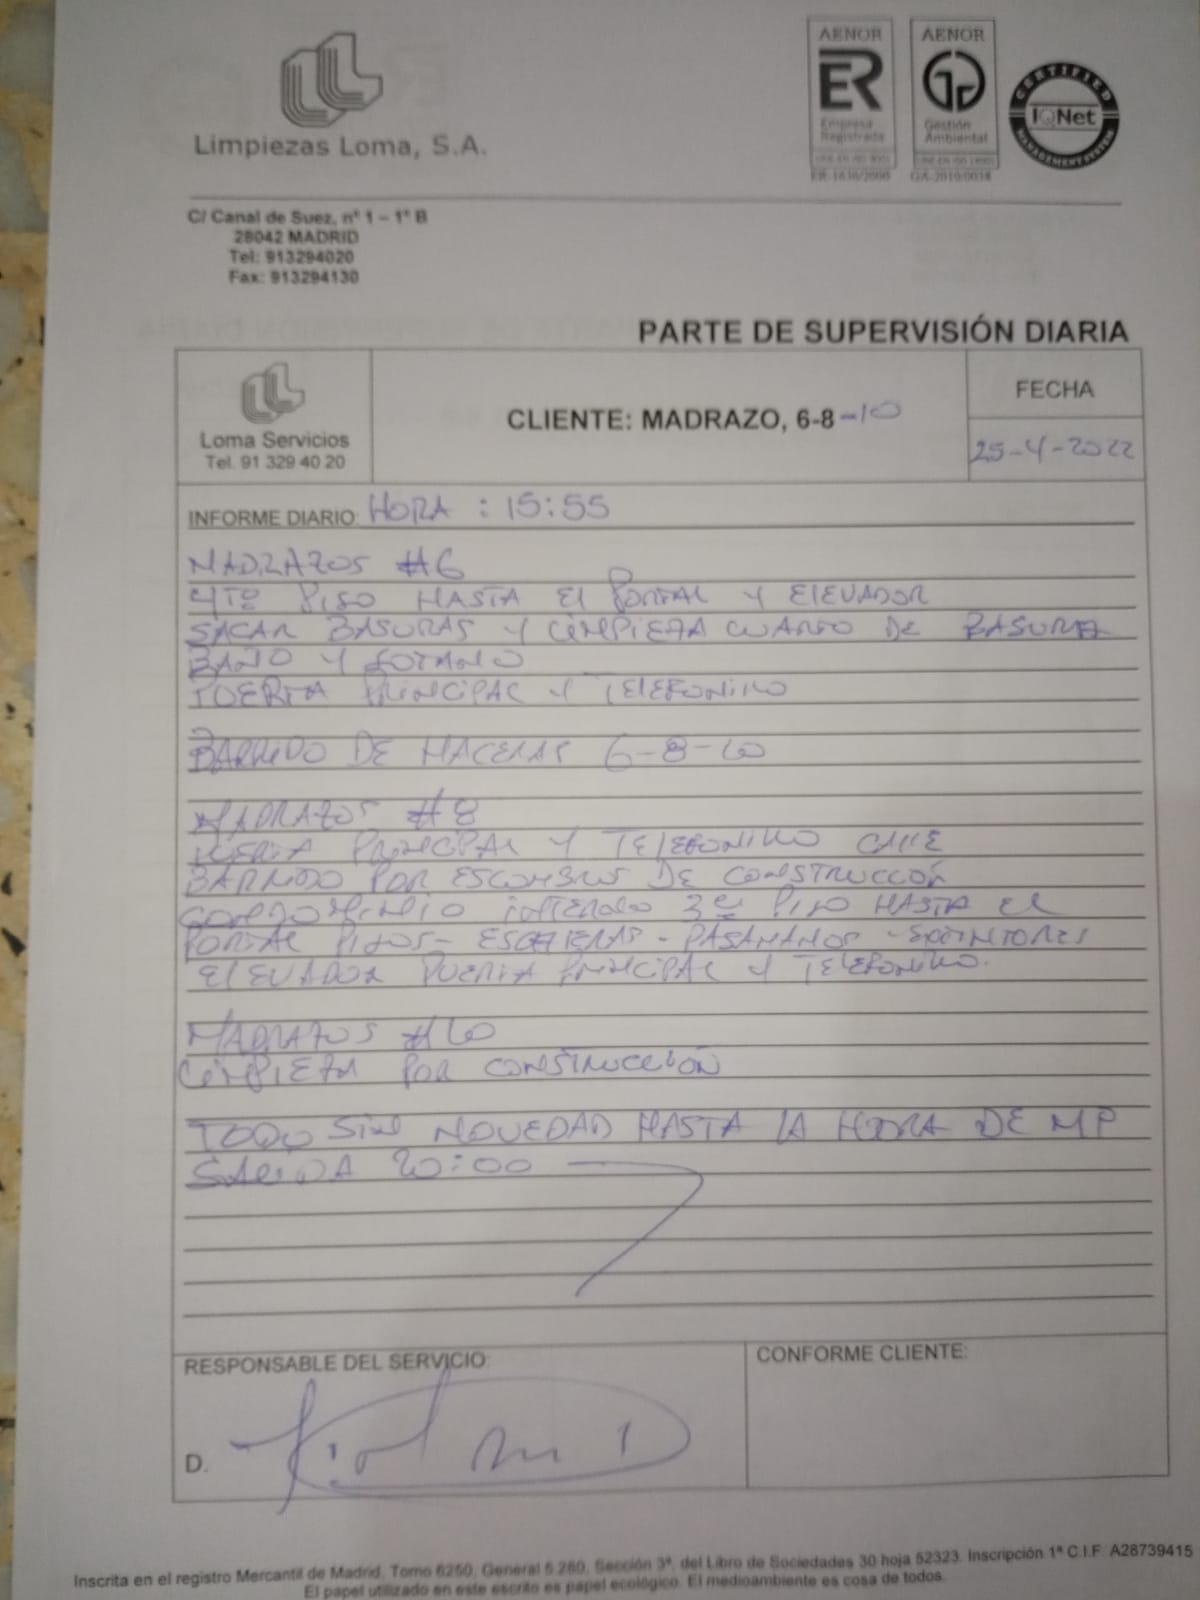 Limpiezas Loma, S.A.
AENOR
ER
Empresa
Registrada
ER-1636/2000
AENOR
Gestión
Ambiental
GA-2010/0038
CERTIFIED
IQNet
MANAGEMENT SYSTEM
C/ Canal de Suez, nº 1 – 1º B
28042 MADRID
Tel: 913294020
Fax: 913294130
PARTE DE SUPERVISIÓN DIARIA
Loma Servicios
Tel. 91 329 40 20
CLIENTE: MADRAZO, 6-8-10
FECHA
25-4-2022
INFORME DIARIO: HORA : 15:55
MADRAZOS #6
4TO PISO HASTA El PORTAL Y ElEVADOR
SACAR BASURAS Y LIMPIEZA CUARTO DE BASURA
BAÑO Y SOTANO
PUERTA PRINCIPAL Y TELEFONILLO
BARRIDO DE MACERAS 6-8-10
MADRAZOS #8
PUERTA PRINCIPAL Y TELEFONILLO CALLE
BARRIDO POR ESCOMBROS DE CONSTRUCCIÓN
3er PISO HASTA EL
PORTAL PISOS - ESCALERAS - PASAMANOS - EXTINTORES
ElEVADOR PUERTA PRINCIPAL Y TELEFONILLO.
MADRAZOS #10
LIMPIEZA POR CONSTRUCCIÓN
TODO SIN NOVEDAD HASTA LA HORA DE MI
SALIDA 20:00
RESPONSABLE DEL SERVICIO:
CONFORME CLIENTE:
D.
Inscrita en el registro Mercantil de Madrid, Tomo 6250, General 5.280, Sección 3ª, del Libro de Sociedades 30 hoja 52323. Inscripción 1ª C.I.F. A28739415
El papel utilizado en este escrito es papel ecológico. El medioambiente es cosa de todos.